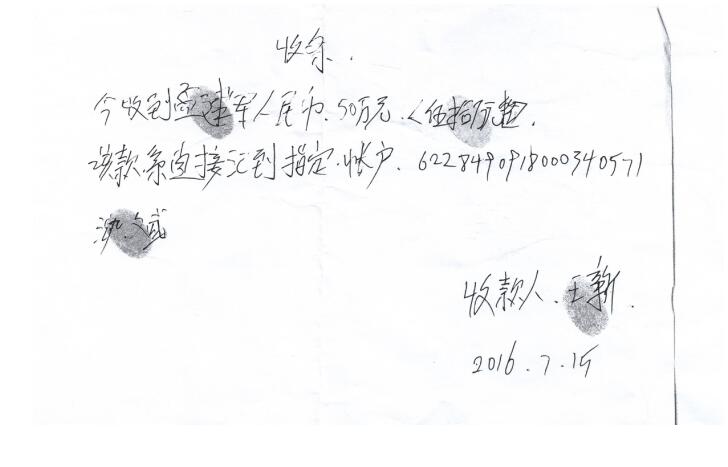 收条.
今收到孟建军人民币.50万元.<伍拾万元整.
该款系直接汇到指定.帐户.6228490918000340571
收款人.王新.
2016.7.15